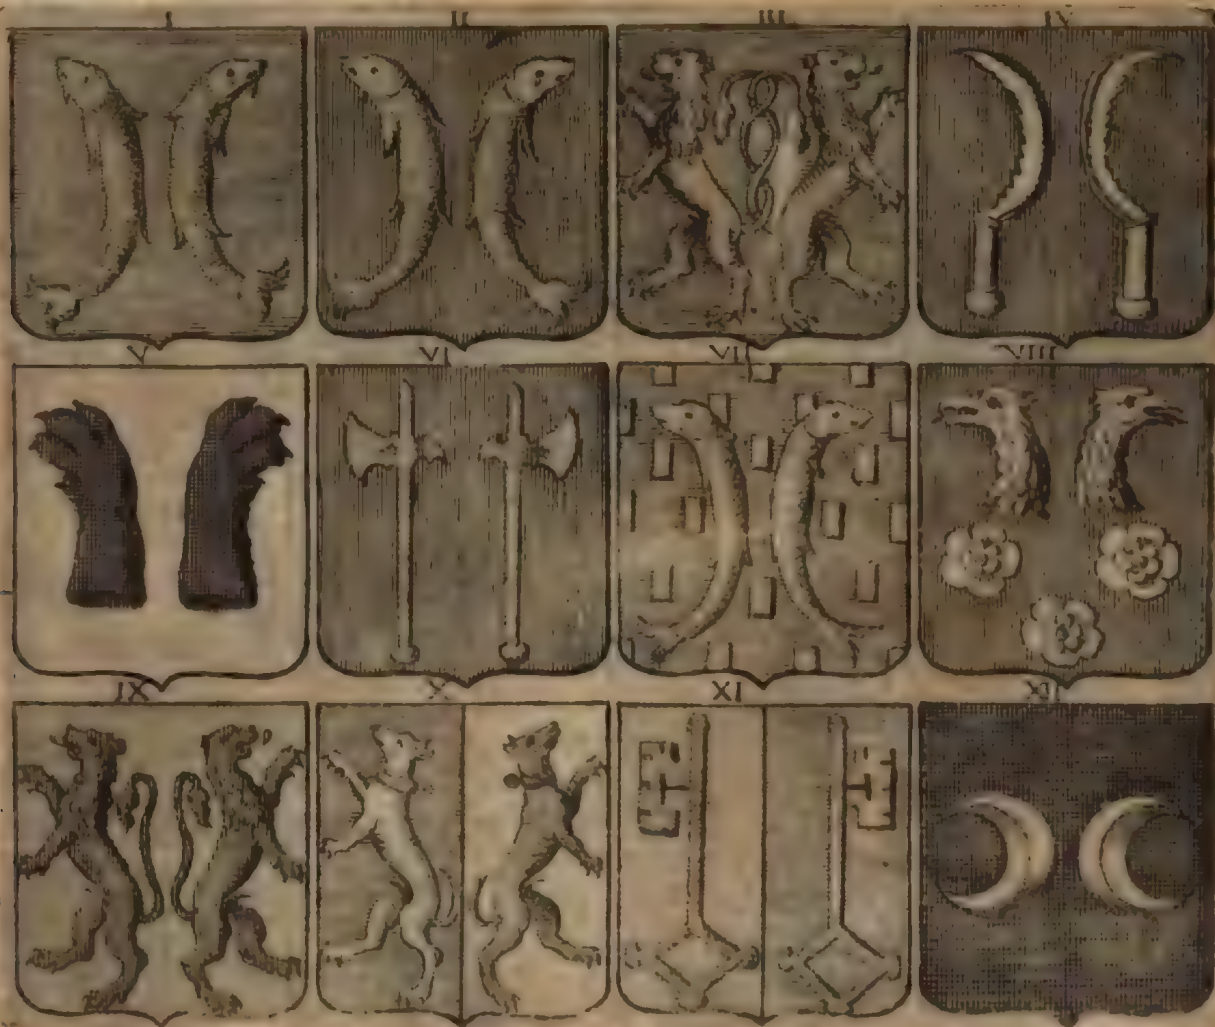 I II III IV
V VI VII VIII
IX X XI XII